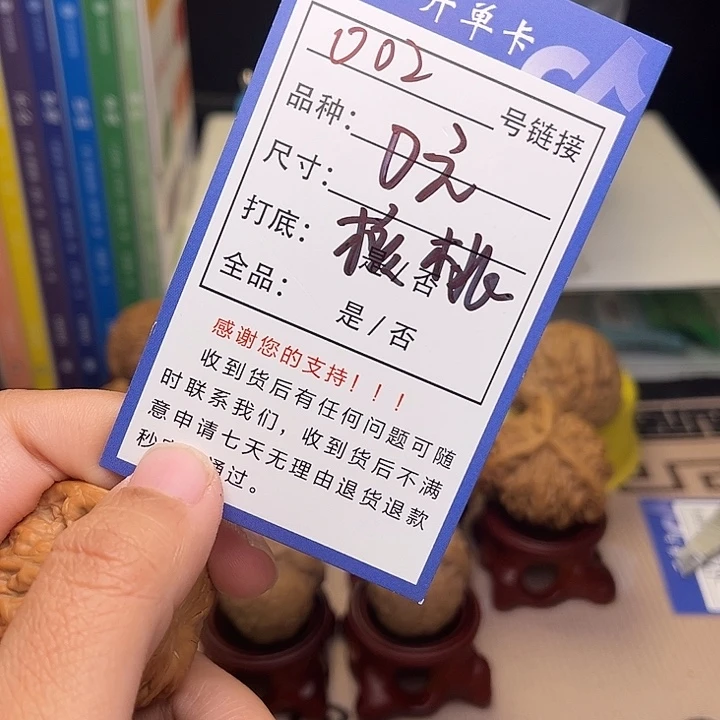 开单卡
002
号链接
品种：
口亥
尺寸：
打底：
核桃
是/否
全品：
是/否
感谢您的支持！！！
收到货后有任何问题可随
时联系我们，收到货后不满
意申请七天无理由退货退款
秒 通过。